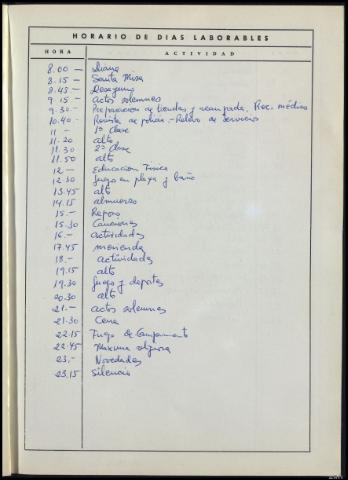 HORARIO DE DIAS LABORABLES
HORA ACTIVIDAD
8.00 — Diana
8.15 — Santa Misa
8.45 — Desayuno
9.15 — Actos solemnes
9.30.- Preparación de tiendas y acampada. Rec. médico
10.40.- Revista de policía.- Relevo de servicios
11 — 1ª Clase
11.20 alto
11.30 2ª Clase
11.50 alto
12 — Educacion Fisica
12.30 Juego en playa y baño
13.45 alto
14.15 almuerzo
15.- Reposo
15.30 Canciones
16.- actividades
17.45 merienda
18.- actividades
19.15 alto
19.30 Juego y deportes
20.30 alto
21.- actos solemnes
21.30 Cena
22.15 Fuego de Campamento
22.45
23.- Novedades
23.15 Silencio